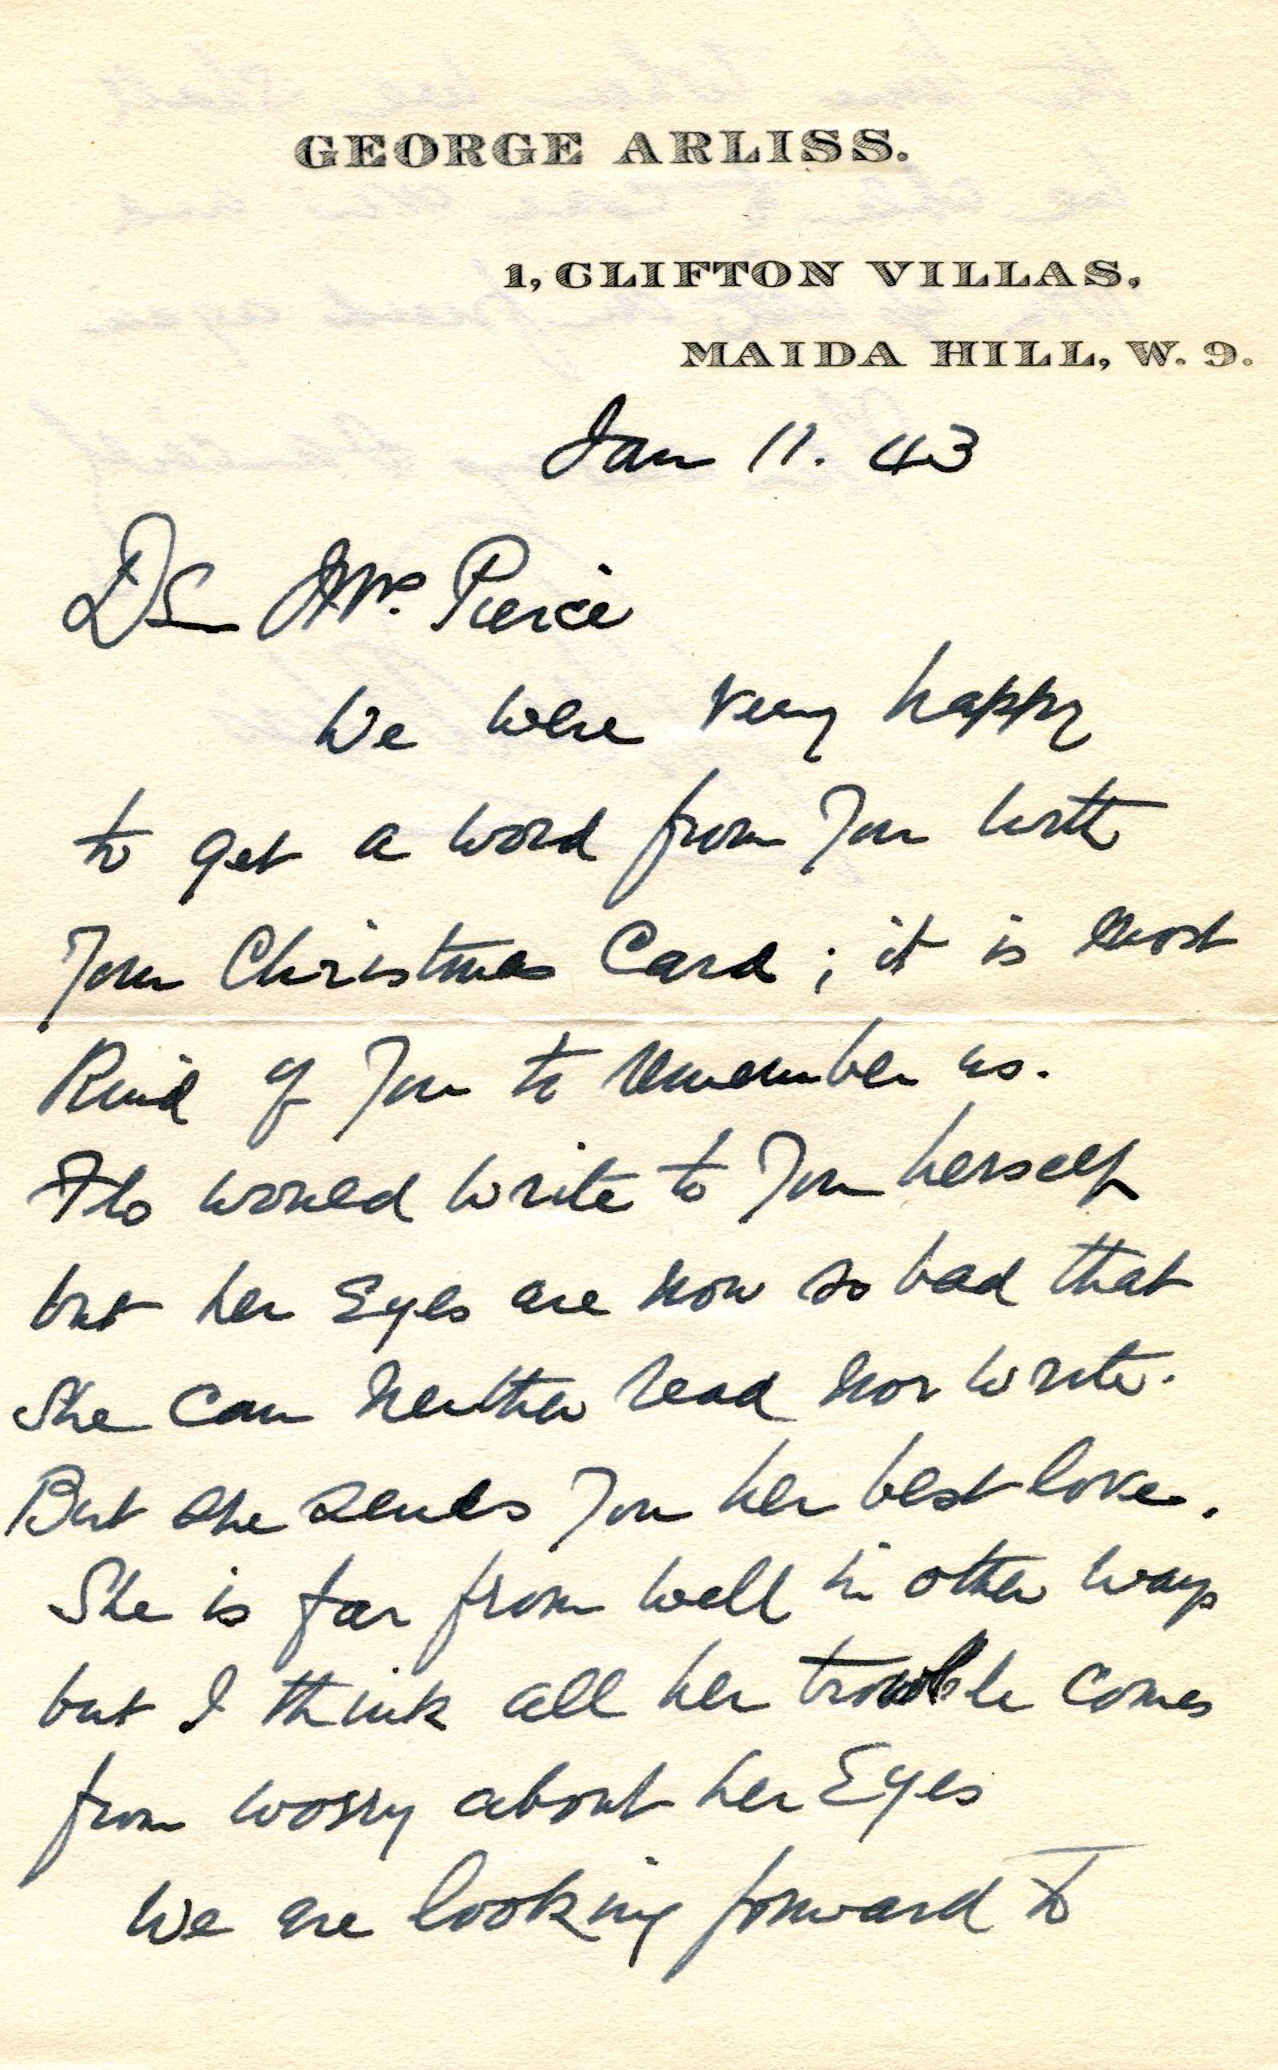 GEORGE ARLISS.
1, CLIFTON VILLAS,
MAIDA HILL, W. 9.
Jan 11. 43
Dr Mrs. Pierce
We were very happy
to get a word from you with
your Christmas Card; it is most
kind of you to remember us.
Flo would write to you herself
but her Eyes are now so bad that
She can neither read nor write.
But she sends you her best love.
She is far from well in other ways
but I think all her trouble comes
from worry about her Eyes
We are looking forward to